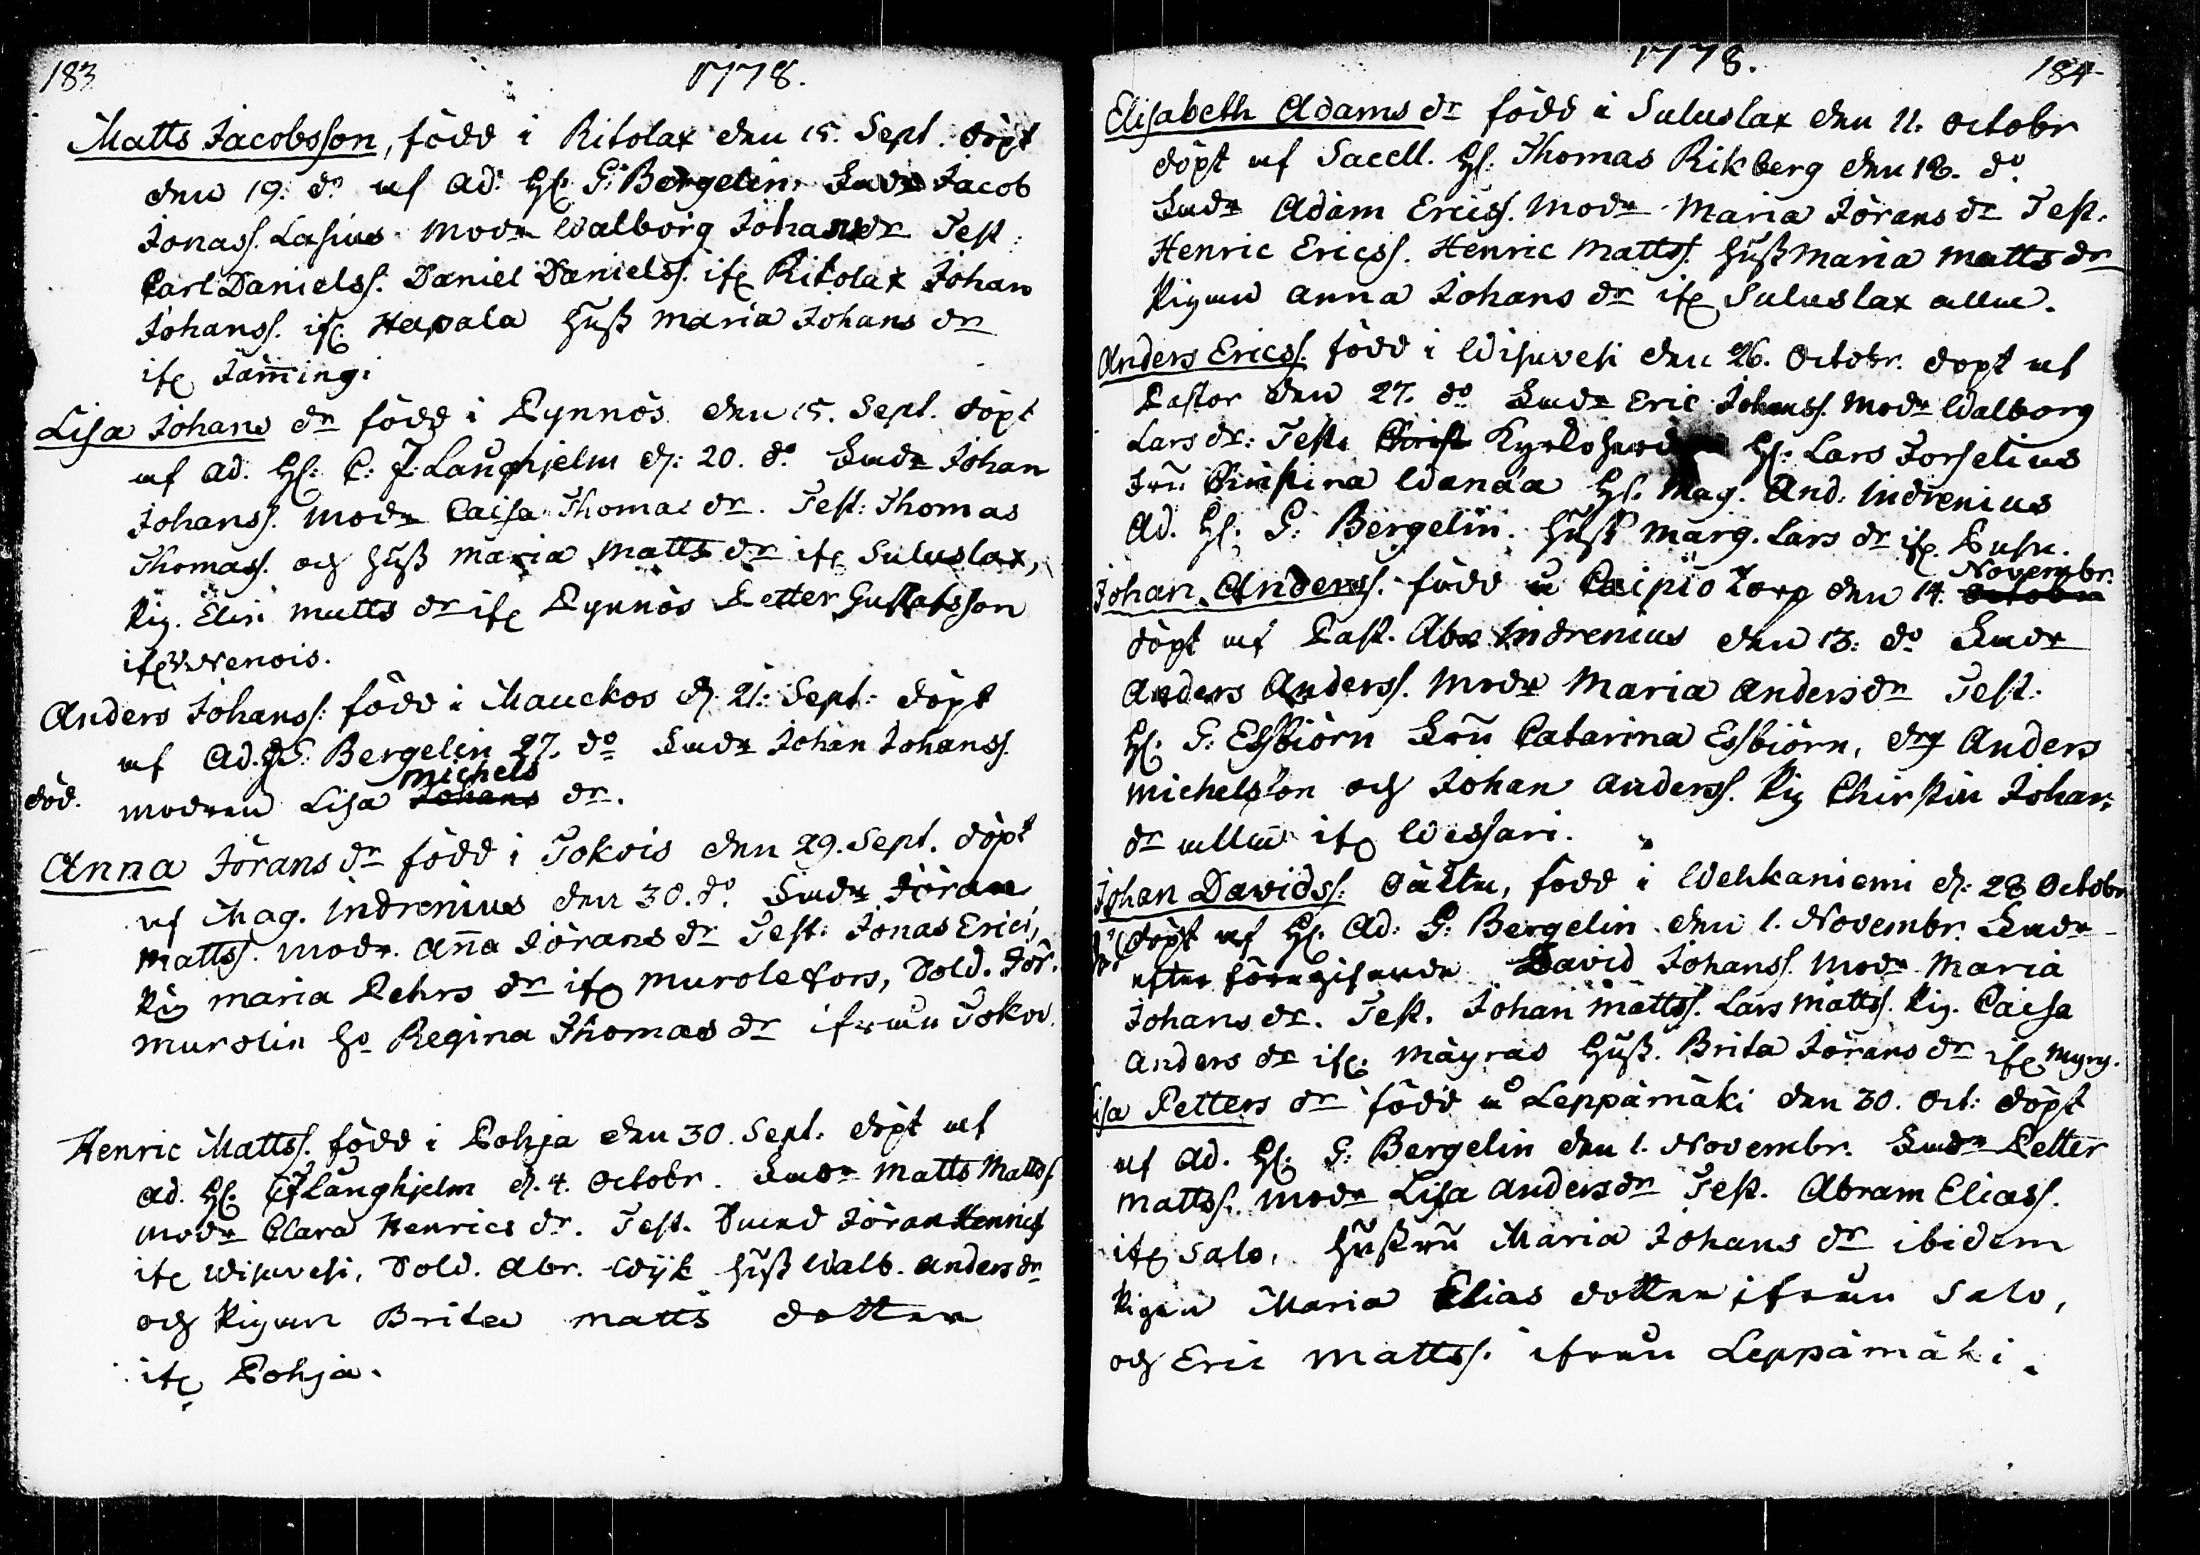 183
1778.
Matts Jacobsson, född i Ritolax den 15. Sept. döpt
den 19. do af Ad: H: G: Bergelin. Fadr Jacob
Jonass. Lasius Modr Walborg Johansdr Test:
Carl Danielss. Daniel Danielss. if: Ritolax Johan
Johanss. if: Hapala Hust Maria Johans dr
if: Jämingi
Lisa Johans dr född i Pynnös den 15. Sept. döpt
af Ad. H: C: F: Langhjelm d: 20. do Fadr Johan
Johanss. Modr Caisa Thomas dr. Test: Thomas
Thomass. och Hust Maria Matts dr if: Suluslax,
Pig. Elin Matts dr if: Pynnös Petter Gustafsson
if: Nenois.
Anders Johanss: född i Mauckos d: 21: Sept: döpt
af Ad. H: G: Bergelin 27. do Fadr Johan Johanss.
död. modren Lisa Johans Michels dr.
Anna Jörans dr född i Jokois den 29. Sept. döpt
af Mag. Indrenius den 30. do Fadr Jöran
Mattss. Modr. Anna Jörans dr Test: Jonas Erici,
Pig Maria Pehrs dr if: Murolefors, Sold. Jör.
Murolin Ho Regina Thomas dr ifrån Jokoi.
Henric Mattss. född i Pohja den 30. Sept. döpt af
Ad. H: CF Langhjelm d. 4. Octobr. Fadr Matts Mattss
Modr Clara Henrics dr. Test. Jöran Henrics
if: Wisuvesi, Sold. Abr. Wijk Hust Walb. Anders dr
och Pigan Brita Matts dotter
if: Pohja.
1778.
184
Elisabeth Adams dr född i Suluslax den 11. Octobr
döpt af Sacell. H: Thomas Rikberg den 12. do
Fadr Adam Ericss. Modr Maria Jörans dr Test.
Henric Ericss. Henric Mattss. Hust Maria Matts dr
Pigan Anna Johans dr if: Suluslax alla.
Anders Ericss. född i Wisuvesi den 26. Octobr. döpt af
Pastor den 27. do Fadr Eric Johanss. Modr Walborg
Lars dr: Test: H: Lars Forselius
Fru Wanaa H: Mag. And. Indrenius
Ad. H: G: Bergelin. Hust Marg. Lars dr if:
Johan Anderss. född å Torp den 14. Octobr Novembr.
döpt af Past. Abr Indrenius den 13: do Fadr
Anders Anderss. Modr Maria Andersdr Test:
H: G: Essbiörn Fru Catarina Essbiörn, drg Anders
Michelsson och Johan Anderss. Pig Chirstin Johans
dr alla if: Wessari.
Johan Davidss: född i Wehkaniemi d: 28 Octobr
döpt af H: Ad: G: Bergelin den 1. Novembr. Fadr
efter föregifvande David Johanss. Modr Maria
Johans dr. Test. Johan Mattss. Lars Mattss. Pig. Caisa
Anders dr if: Mäyräs Hust. Brita Jörans dr if: Myry.
Lisa Petters dr född å Leppämäki den 30. Oct: döpt
af Ad. H: G: Bergelin den 1. Novembr. Fadr Petter
Mattss. Modr Lisa Andersdr Test. Abram Eliass.
if: Salo, Hustru Maria Johans dr ibidem
Pigan Maria Elias dotter ifrån Salo,
och Eric Mattss. ifrån Leppämäki.